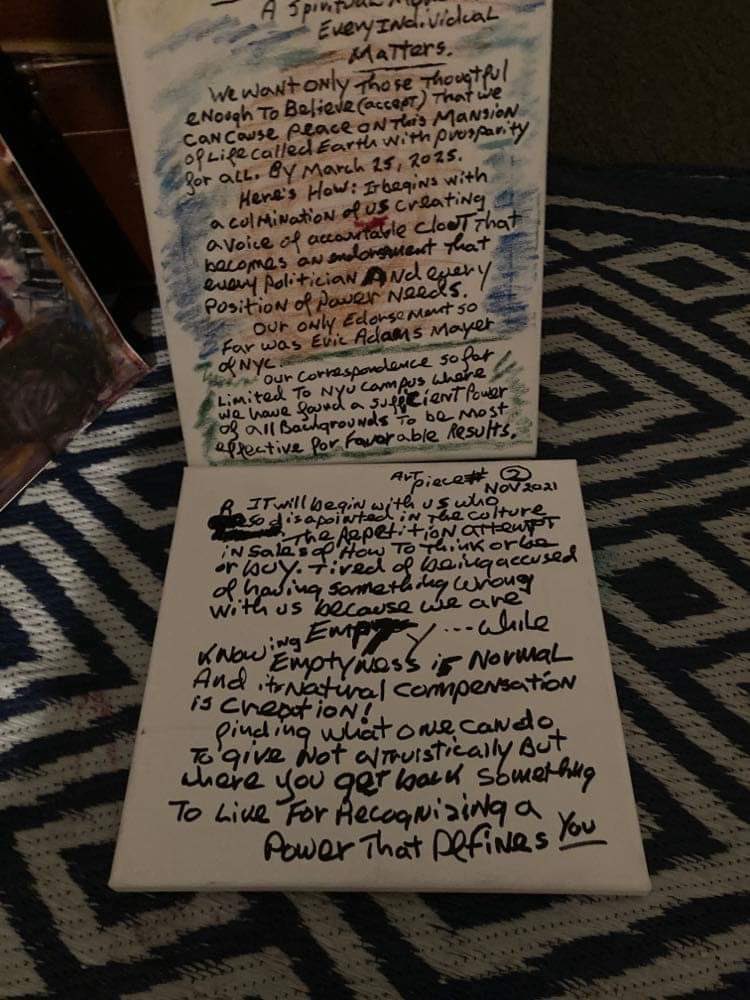 A Spiritual
Every Individual
Matters.
We want only Those Thougtful
enough To Believe (accept) That we
can cause peace on This Mansion
of Life called Earth with prosparity
for all. By March 25, 2025.
Here's How: It begins with
a culmination of us creating
a voice of accountable clout That
becomes an endorsment That
every politician And every
Position of power Needs.
Our only Edorsement so
far was Eric Adams Mayer
of NYC.
Our correspondence so far
Limited To NYU campus where
we have found a sufficient power
of all Backgrounds To be most
effective for favorable Results.
Art piece# 2
Nov 2021
IT will begin with us who
so disapointed in The culture
The Repetition attempt
in sales of How To Think or be
or buy. Tired of being accused
of having something wrong
with us because we are
Empty ... while
Knowing
Emptyness is Normal
And its Natural compensation
is Creation!
Finding what one can do
To give Not altruistically But
where you get back something
To Live For Recognizing a
Power That Defines You